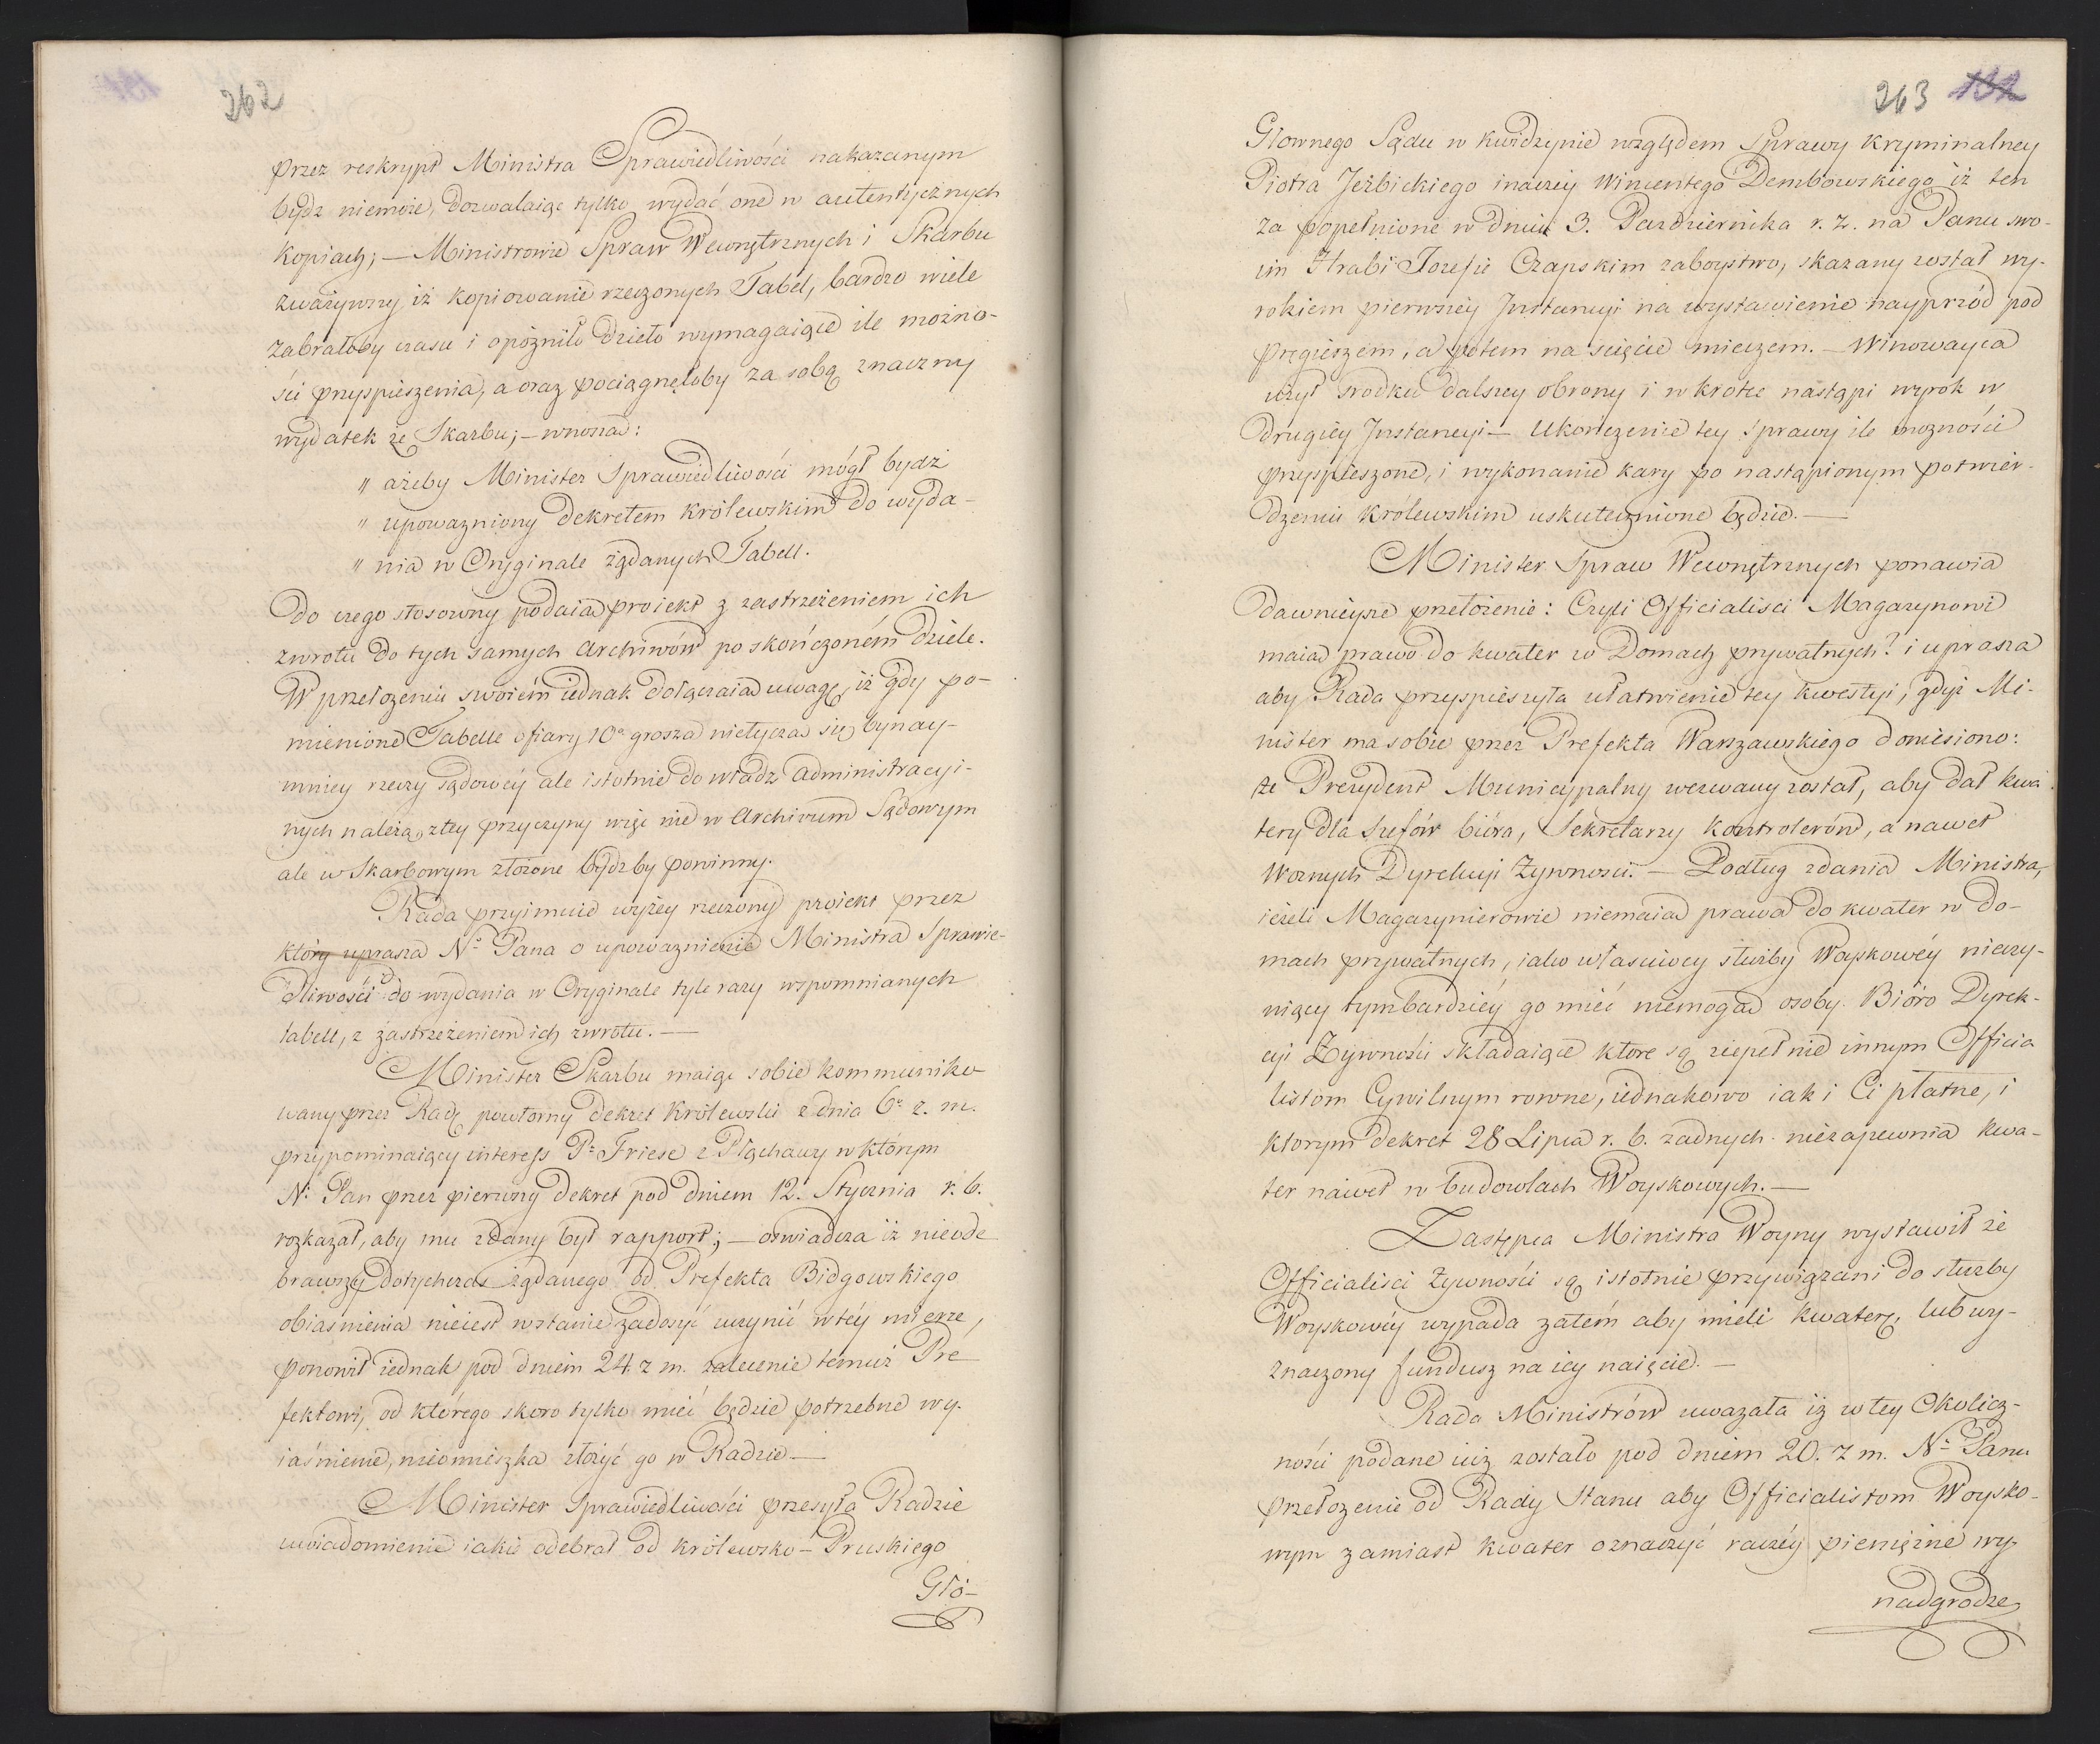 262
przez reskrypt Ministra Sprawiedliwości nakazanym
bydz niemoże, dozwalaiąc tylko wydać one w autentycznych
kopiach; — Ministrowie Spraw Wewnętrznych i Skarbu
zważywszy iż kopiowanie rzeczonych Tabel, bardzo wiele
zabrałoby czasu i opóźniło dzieło wymagaiące ile możno-
ści przyspieszenia, a oraz pociągnęłoby za sobą znaczny
wydatek ze Skarbu; — wnoszą:
„ ażeby Minister Sprawiedliwości mógł bydź
„ upoważniony dekretem królewskim do wyda-
„ nia w Oryginale żądanych Tabell.
Do czego stosowny podaią proiekt z zastrzeżeniem ich
zwrotu do tych samych Archiwów po skończoném dziele.
W przełożeniu swoiém iednak dołączaią uwagę, iż gdy po-
mienione Tabelle ofiary 10º grosza nietyczą się bynay-
mniey rzeczy sądowéy ale istotnie do władz administracyi-
nych należą, ztey przyczyny więc nie w Archivum Sądowym
ale w Skarbowym złożone bydź by powinny.
Rada przyimuie wyżey rzeczony proiekt przez
który uprasza N. Pana o upoważnienie Ministra Sprawie-
dliwości do wydania w Oryginale tyle razy wspomnianych
tabell, z zastrzeżeniem ich zwrotu. —
Minister Skarbu maiąc sobie kommuniko-
wany przez Radę powtorny dekret Królewski z dnia 6º z. m.
przypominaiący interess Pº Friese z Płąchawy w którym
N. Pan przez pierwszy dekret pod dniem 12. Stycznia r. b.
rozkazał, aby mu zdany był rapport; — oświadcza iż nieode
brawszy dotychczas żądanego od Prefekta Bidgowskiego
obiaśnienia nieiest wstanie zadosyć uczynić w téy mierze,
ponowił iednak pod dniem 24 z m. zalecenie temuż Pre
fektowi, od którego skoro tylko mieć będzie potrzebne wy-
iaśnienie, nieomieszka złożyć go w Radzie —
Minister Sprawiedliwości przesyła Radzie
uwiadomienie iakie odebrał od królewsko-Pruskiego
Głó-
263 132
Głownego Sądu w Kwidzynie względem Sprawy Kryminalney
Piotra Jeżbickiego inaczéy Wincentego Dembowskiego iż ten
za popełnione w dniu 3. Pazdziernika r. z. na Panu swo-
im Hrabi Jozefie Czapskim zaboystwo, skazany został wy-
rokiem pierwszéy Instancyi na wystawienie nayprzód pod
pręgierzem, a potem na scięcie mieczem. — Winowayca
użył srodku dalszey obrony i w krotce nastąpi wyrok w
drugiéy Instancyi — Ukończenie tey sprawy ile możności
przyspieszone, i wykonanie kary po nastąpionym potwier-
dzeniu królewskim uskutecznione będzie. —
Minister Spraw Wewnętrznych ponawia
dawnieysze przełożenie: Czyli Officialisci Magazynowi
maią prawo do kwater w Domach prywatnych? i uprasza
aby Rada przyspieszyła ułatwienie tey kwestyi, gdyż Mi-
nister ma sobie przez Prefekta Warszawskiego doniesiono:
że Prezydent Municypalny wezwany został, aby dał kwa
tery dla Szefów bióra, Sekretarzy Kontrolerów, a nawet
Woznych Dyrekcyi Żywności. — Podług zdania Ministra,
ieżeli Magazynierowie niemaią prawa do kwater w do-
mach prywatnych, iako właściwey służby Woyskowéy nieczy-
niący tymbardziéy go mieć niemogą osoby Bióro Dyrek-
cyi Żywności składaiące które są zupełnie innym Officia
listom Cywilnym rowne, iednakowo iak i Ci płatne, i
ktorym dekret 28 Lipca r. b. żadnych niezapewnia kwa-
ter nawet w budowlach Woyskowych. —
Zastępca Ministra Woyny wystawił że
Officialisci Żywności są istotnie przywiązani do służby
Woyskowéy wypada zatém aby mieli kwaterę, lub wy-
znaczony fundusz na iey naięcie. —
Rada Ministrów uważała iż w tey Okolicz-
ności podane iuż zostało pod dniem 20. z m. N. Panu
przełożenie od Rady Stanu aby Officialistom Woysko-
wym zamiast kwater oznaczyć raczéy pieniężne wy-
nadgrodze